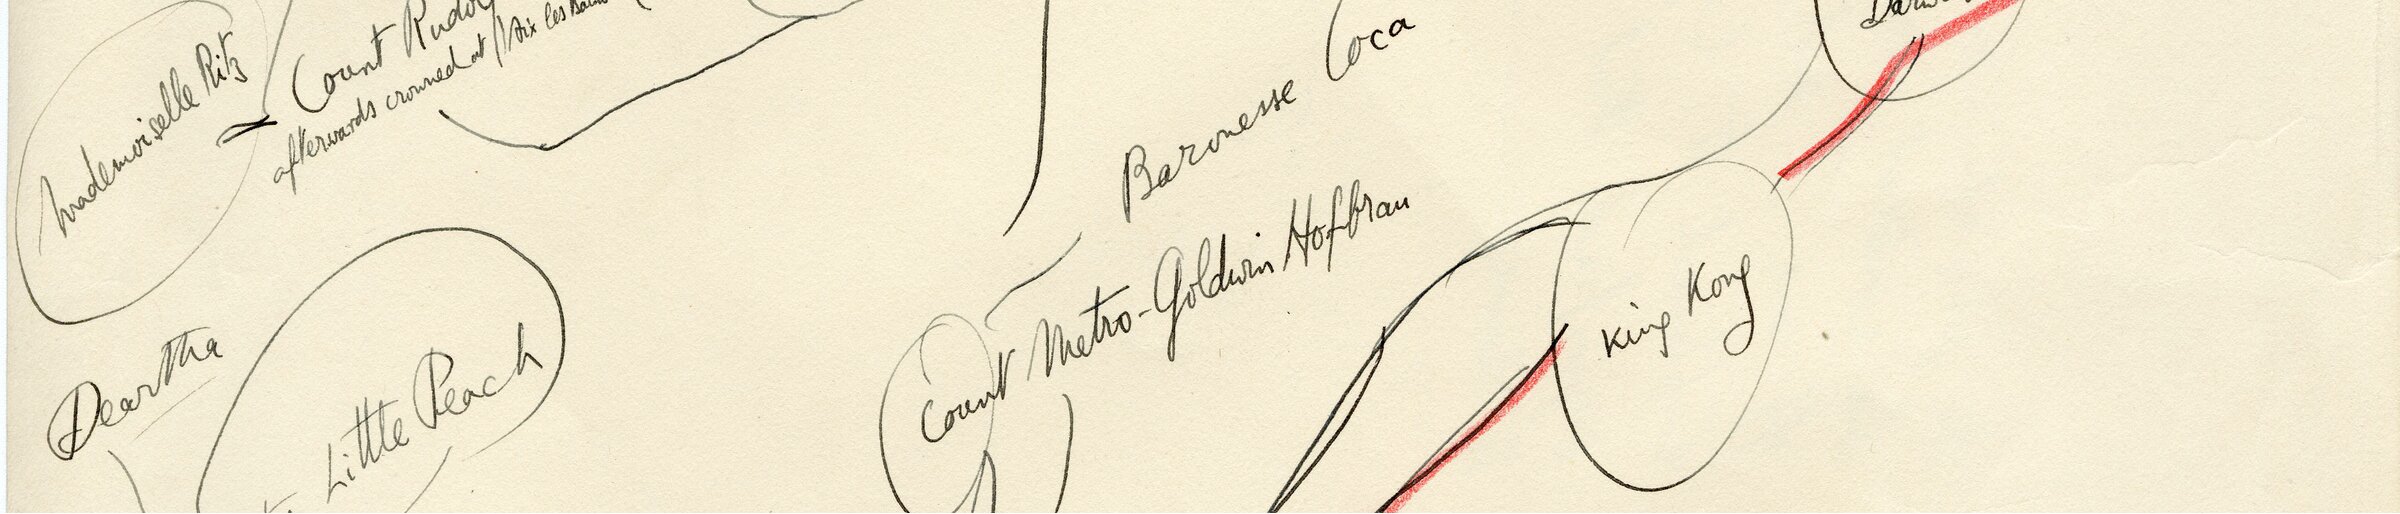 Mademoiselle Ritz
Count
afterwards crowned at Aix les
Baronesse Coca
Count Metro-Goldwin Hofbrau
King Kong
Deartha
Little Peach